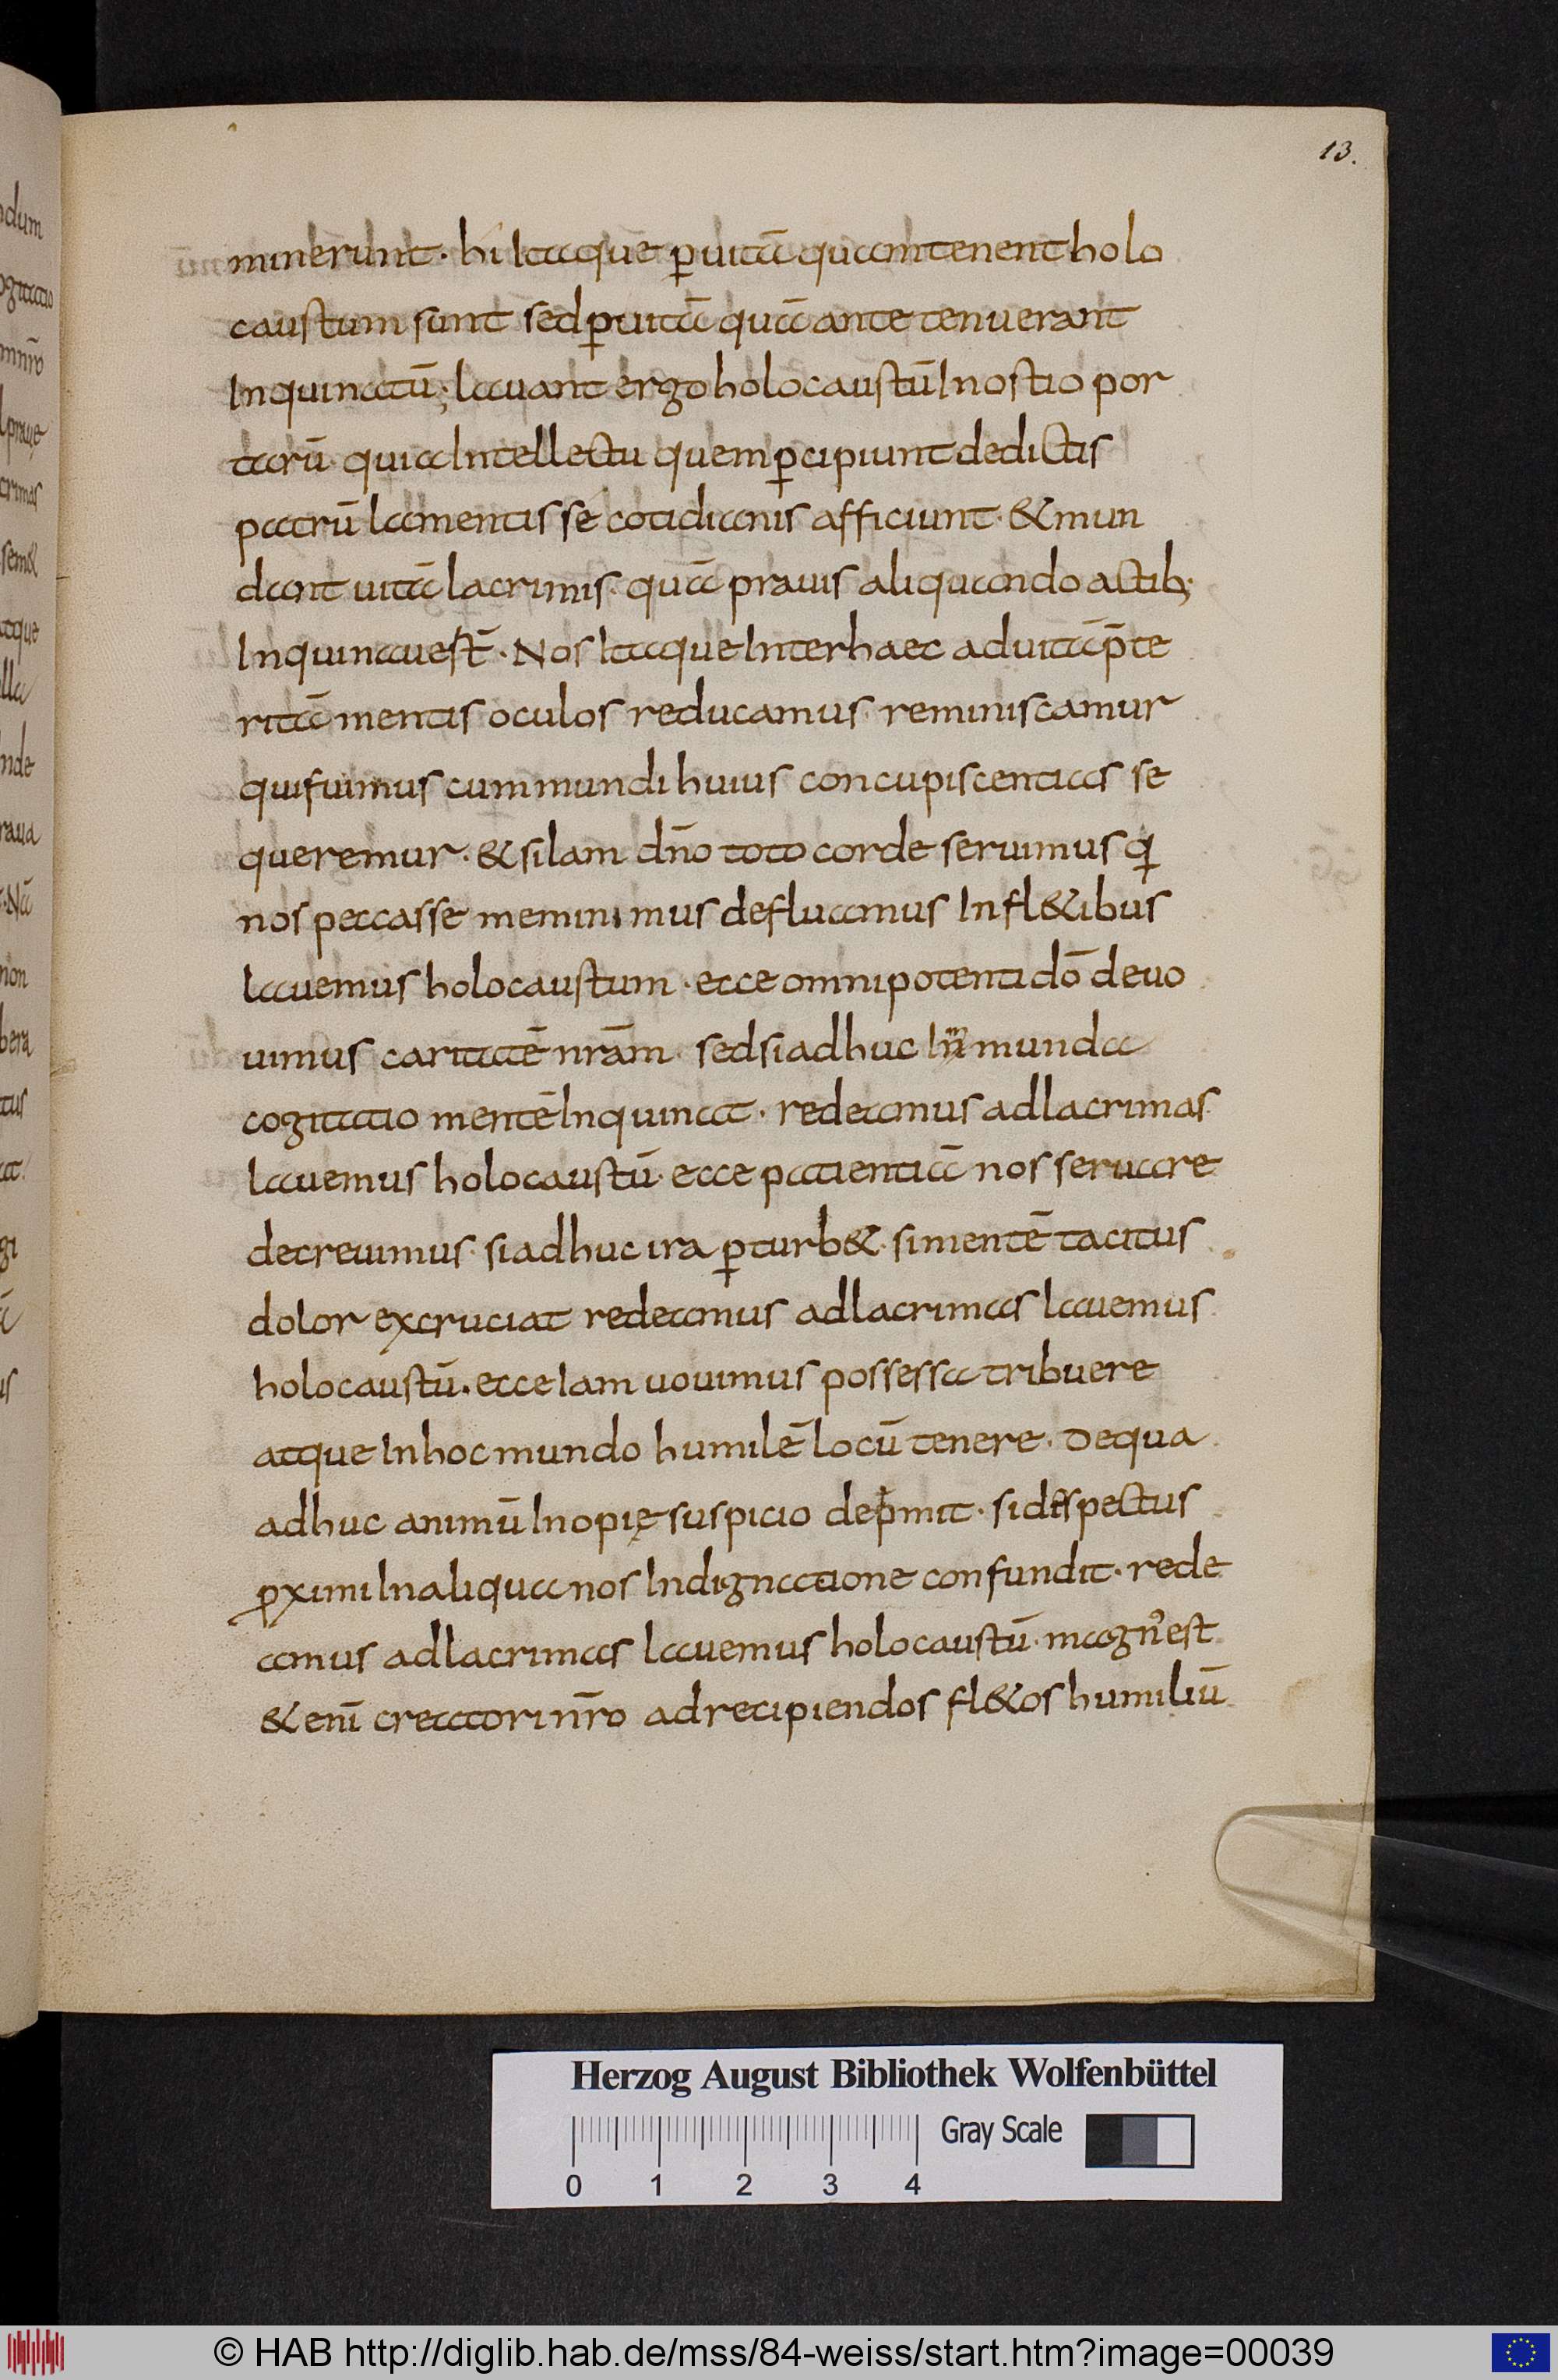 13.
minerunt. hi Itaque ꝑ uitā quam tenent holo
caustum sunt sed ꝑ uitā quā ante tenuerant
Inquinatū; lauant ergo holocaustū In ostio por
tarū. quia Intellectu quem ꝑcipiunt de dictis
patrū lamentis se cotidianis afficiunt. & mun
dant uitā lacrimis. quā prauis aliquando actib;
Inquinauest̄. Nos Itaque Inter haec ad uitā p̄te
ritā mentis oculos reducamus. reminiscamur
qui fuimus cum mundi huius concupiscentias se
queremur. & si Iam dn̄o toto corde seruimus q
nos peccasse meminimus defluamus In fl&ibus
lauemus holocaustum. ecce omnipotenti dō deuo
uimus caritatē nrām. sed si adhuc Inmunda
cogitatio mentē Inquinat. redeamus ad lacrimas.
lauemus holocaustū. ecce patientiā nos seruare
decreuimus. si adhuc ira ꝑturb&. si mentē tacitus
dolor excruciat redeamus ad lacrimas lauemus
holocaustū. ecce Iam uouimus possessa tribuere
atque In hoc mundo humilē locū tenere. De qua
adhuc animū Inopię suspicio depmit. si dispectus
ꝓximi In aliqua nos Indignatione confundit. rede
amus ad lacrimas lauemus holocaustū. magn̉ est
& enī creatori nr̄o ad recipiendos fl&os humiliū
Herzog August Bibliothek Wolfenbüttel
Gray Scale
0 1 2 3 4
© HAB http://diglib.hab.de/mss/84-weiss/start.htm?image=00039